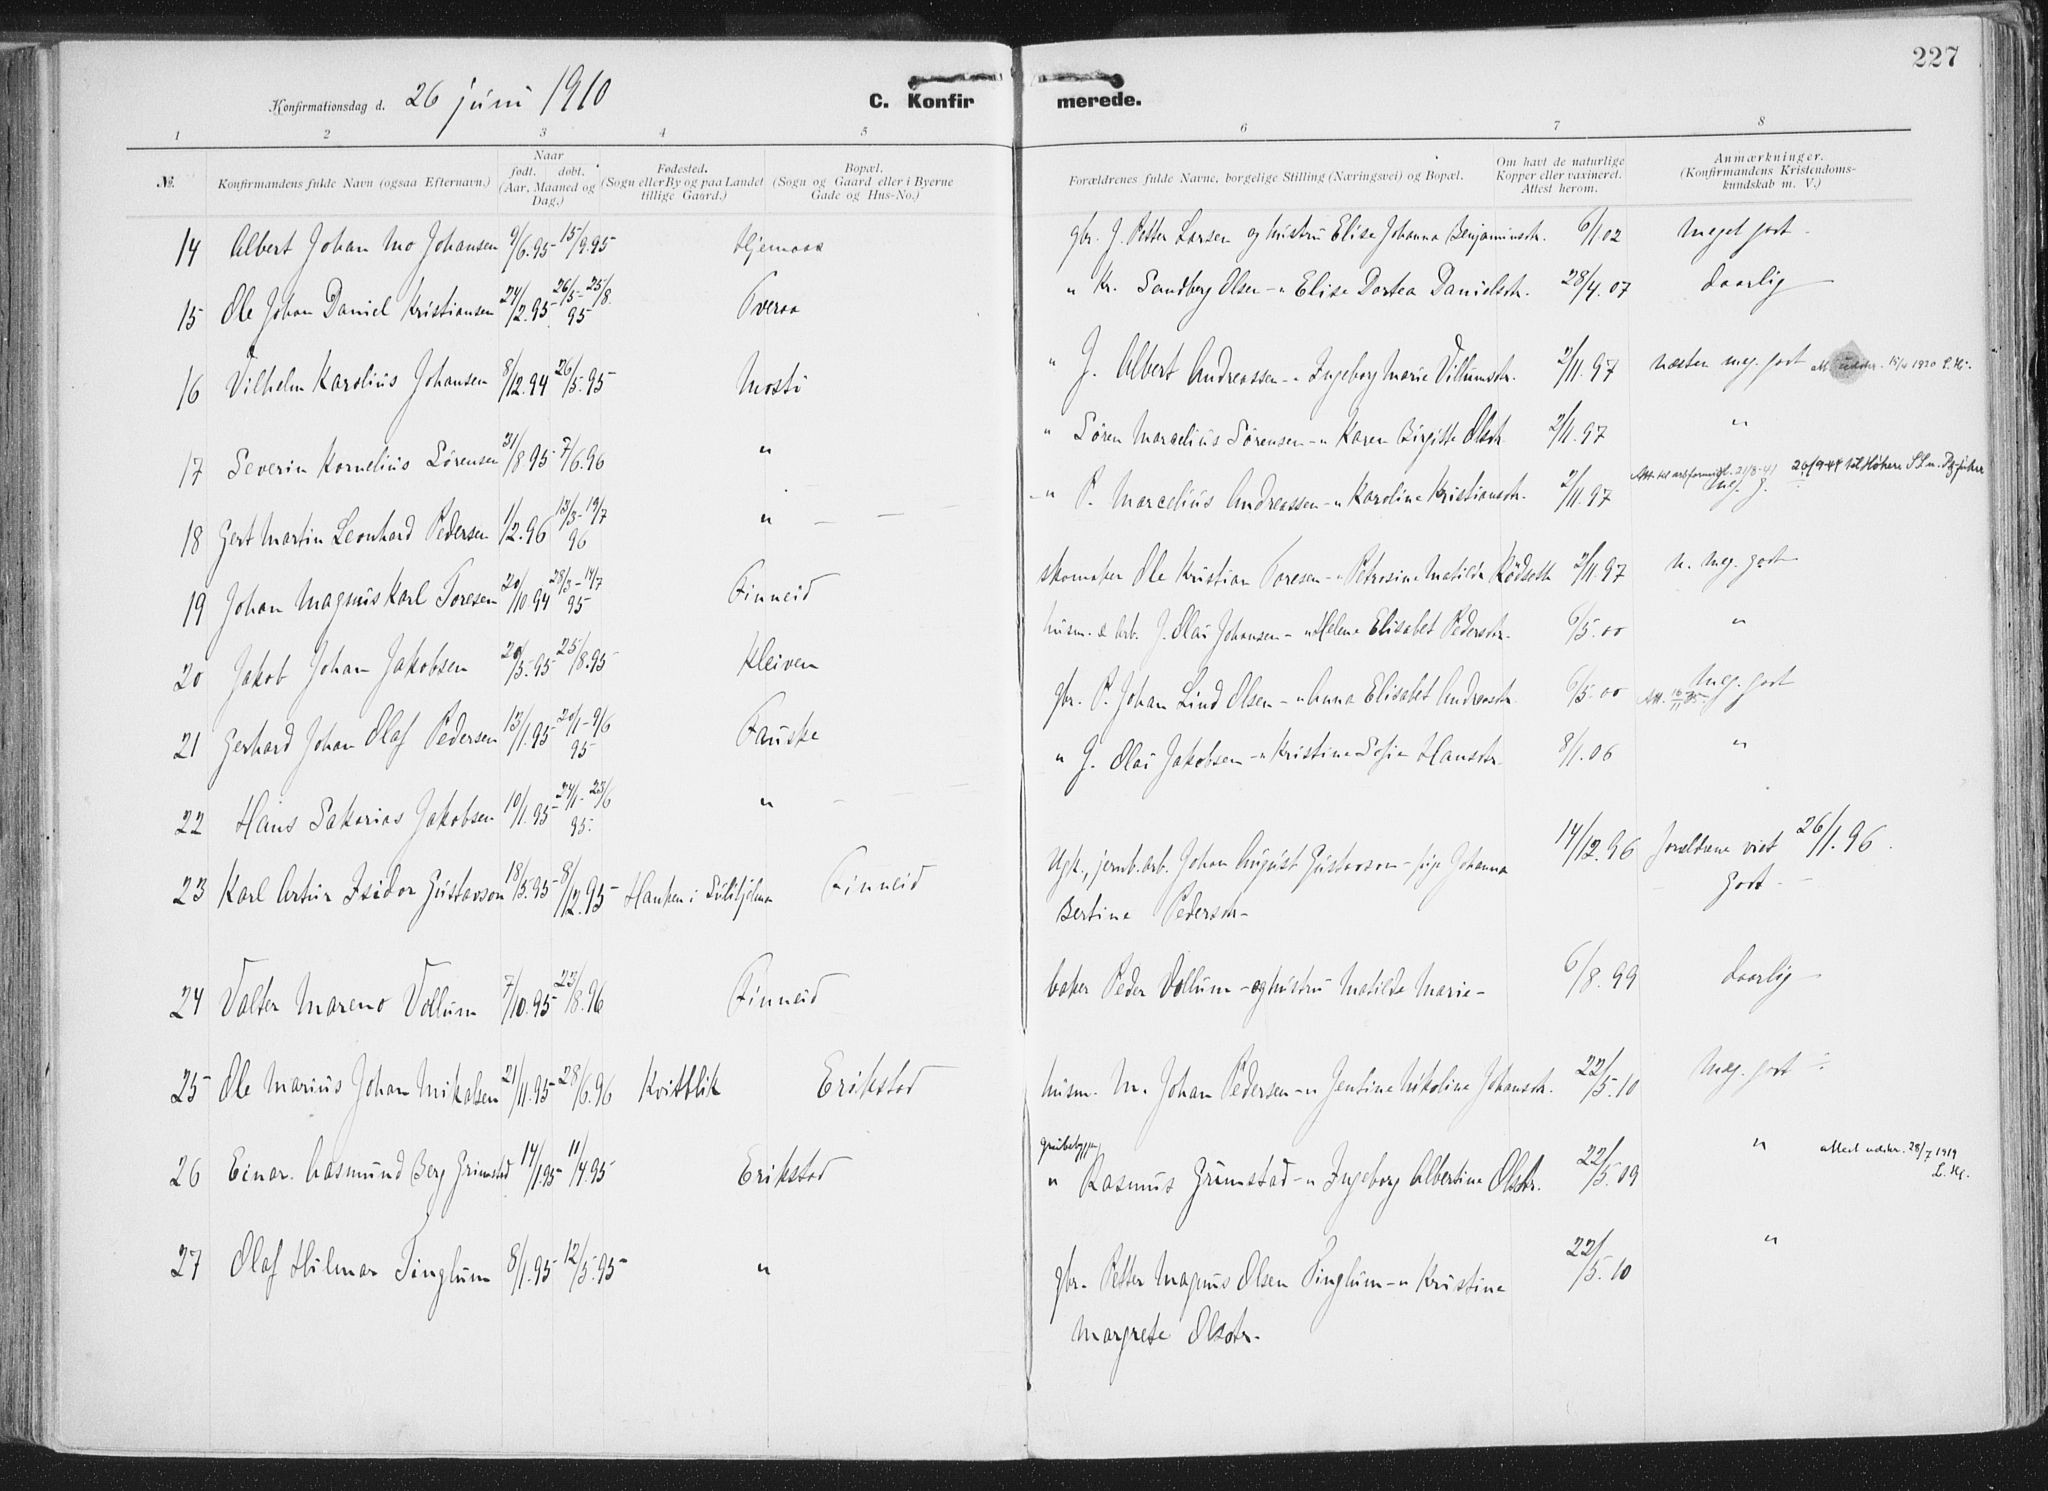 227
Konfirmationsdag d. 26 juni 1910
C. Konfirmerede.
1 2 3 4 5 6 7 8
№.
Konfirmandens fulde Navn (ogsaa Efternavn.)
Naar født. døbt. (Aar, Maaned og Dag.)
Fødested. (Sogn eller By og paa Landet tillige Gaard.)
Bopæl. (Sogn og Gaard eller i Byerne Gade og Hus-No.)
Forældrenes fulde Navne, borgelige Stilling (Næringsvei) og Bopæl.
Om havt de naturlige Kopper eller vaxineret. Attest herom.
Anmærkninger. (Konfirmandens Kristendomskundskab m. V.)
14 Albert Johan Mo Johansen 9/6.95 15/9.95 Hjemaas gbr. J. Petter Larsen og hustru Elise Johanna Benjaminsdtr. 6/1 02 Meget godt
15 Ole Johan Daniel Kristiansen 24/12.95 26/5 - 25/8. 95 Tveraa " Kr. Sandberg Olsen - " Elise Dortea Danielsdtr. 28/4.07 daarlig
16 Vilhelm Karolius Johansen 8/12.94 26/5.95 Mosti " J. Albert Andreassen - " Ingeborg Marie Villumsdtr. 2/11.97 næsten meg. godt att. udstr. 15/4 1920
17 Severin Kornelius Sørensen 31/8.95 7/6.96 " " Sören Marcelius Sörensen - " Karen Birgitte Olsdtr. 2/11.97 "
18 Gert Martin Leonhard Pedersen 1/2.96 13/3 - 19/7 96 " " P. Marcelius Andreassen - " Karoline Kristiansdtr. 2/11 97 meg. g.
19 Johan Magnus Karl Toresen 20/10.94 28/3 - 14/7 95 Finneid skomaker Ole Kristian Toresen - " Petrosine Matilde Rödseth 2/11.97 n. meg. godt
20 Jakob Johan Jakobsen 20/5.95 25/8.95 Kleiven husm. & arb. J. Olai Johansen - " Helene Elisabet Pedersdtr. 6/5.00 "
21 Gerhard Johan Olaf Pedersen 13/1.95 20/1 - 9/6 95 Fauske gbr. P. Johan Lind Olsen - " Anna Elisabet Andreasdtr. 6/5.00 meg. godt
22 Hans Sakarias Jakobsen 10/1.95 24/1 - 23/6 95. " " J. Olai Jakobsen - " Kristine Sofie Hansdtr. 8/1.06 "
23 Karl Artur Isidor Gustavson 18/5.95 8/12.95 Hanken i Sulitjelma Finneid Ugk., jernb.arb. Johan August Gustavson - pige Johanna
Bertine Pedersdtr 14/12.96 forældrene viet 26/1.96.
godt
24 Valter Mareno Vollum 7/10.95 23/8.96 Finneid baker Peder Vollum - og hustru Matilde Marie - 6/8.99 daarlig
25 Ole Marius Johan Mikalsen 21/11.95 28/6.96 Kvitblik Erikstad husm. M. Johan Pedersen - " Jentine Nikoline Johansdtr. 22/5.10 Meg. godt
26 Einar Aasmund Berg Grimstad 14/1.95 11/4.95 Erikstad " Rasmus Grimstad - " Ingeborg Albertine Olsdtr. 22/5.09 " attest udstr. 28/7 1919
27 Olaf Hilmar Tinglum 8/1.95 12/5.95 " gbr. Petter Magnus Olsen Tinglum - " Kristine
Margrete Olsdtr. 22/5.10 "